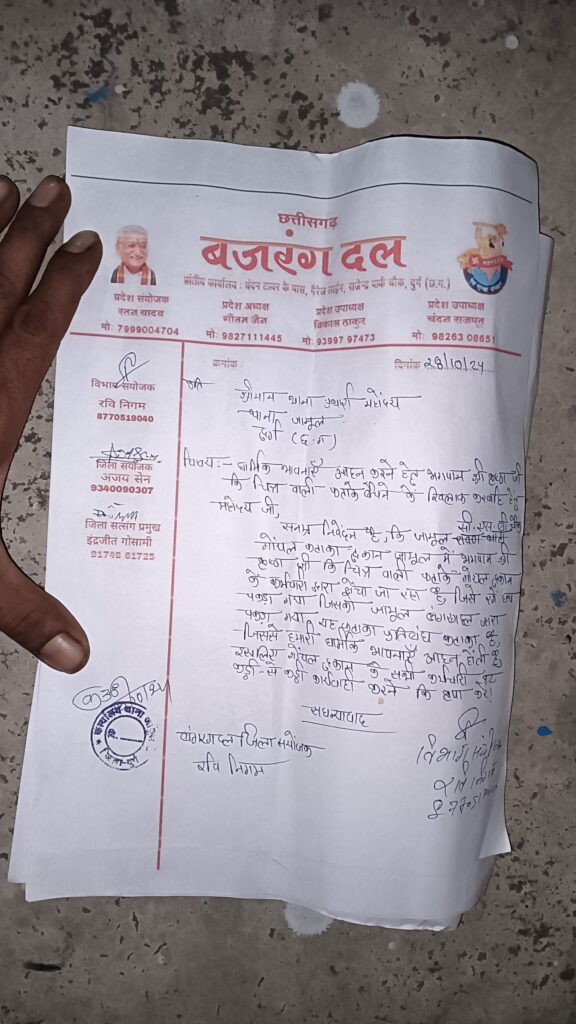 छत्तीसगढ़
बजरंग दल
प्रांतीय कार्यालय : चंदन टायर के पास, गैरेज लाईन, राजेन्द्र पार्क चौक, दुर्ग (छ.ग.)
प्रदेश संयोजक
रतन यादव
मो: 7999004704
प्रदेश अध्यक्ष
गौतम जैन
मो: 9827111445
प्रदेश उपाध्यक्ष
विकास ठाकुर
मो: 93997 97473
प्रदेश उपाध्यक्ष
चंदन राजपूत
मो: 98263 08651
क्रमांक :
दिनांक 28/10/24
विभाग संयोजक
रवि निगम
8770519040
जिला संयोजक
अजय सेन
9340090307
जिला सत्संग प्रमुख
इंद्रजीत गोसामी
91746 61725
प्रति
श्रीमान थाना प्रभारी महोदय
थाना जामुल
दुर्ग (छ.ग)
विषय:- धार्मिक भावनाएँ आहत करने हेतु भगवान श्री कृष्णा जी
कि चित्र वाली फटाके बेचने के खिलाफ करवाहि हेतु
महोदय जी,
सनम्र निवेदन है, कि जामुल
गोयल फटाका दुकान जामुल में भगवान श्री
कृष्णा जी कि चित्र वाली फटाके गोयल दुकान
के कर्मचारी द्वारा बेचा जा रहा है, जिसे रंगे हाथ
पकड़ा गया जिसको जामुल बजरंगदल द्वारा
पकड़ा गया यह फटाका प्रतिबंध फटाका है,
जिससे हमारी धार्मिक भावनाएँ आहत होती है,
इसलिए गोयल दुकान के सभी कर्मचारी पर
कड़ी-से कड़ी कार्यवाही करने कि कृपा करें!
सधन्यवाद
बंजरंगदल जिला संयोजक
रवि निगम
विभाग संयोजक
रवि निगम